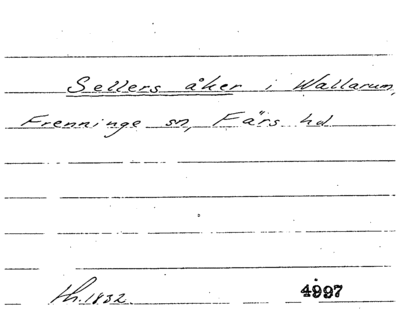 Sellers åker i Wallarum,
Frenninge sn, Färs hd
th. 1832. 4997